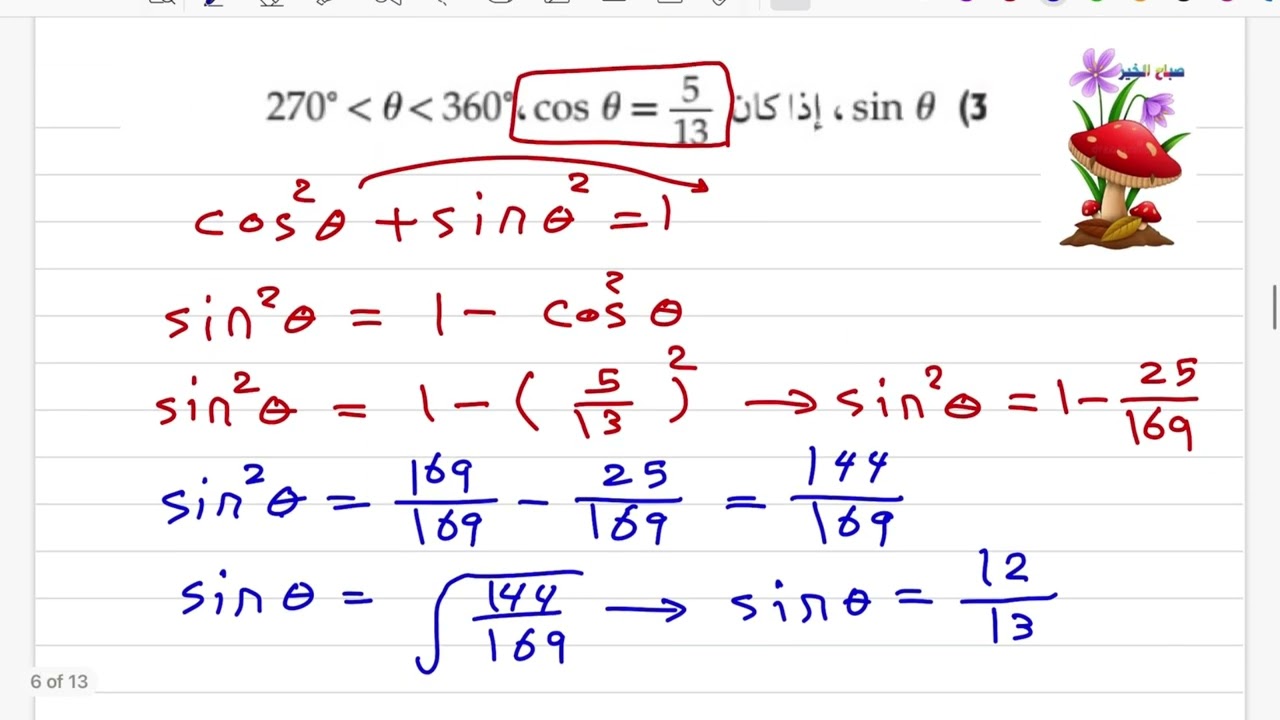 صباح الخير
3) sin θ ، إذا كان cos θ = 5/13 ، 270° < θ < 360°
cos²θ + sinθ² = 1
sin²θ = 1 - cos²θ
sin²θ = 1 - (5/13)² → sin²θ = 1 - 25/169
sin²θ = 169/169 - 25/169 = 144/169
sinθ = √144/169 → sinθ = 12/13
6 of 13